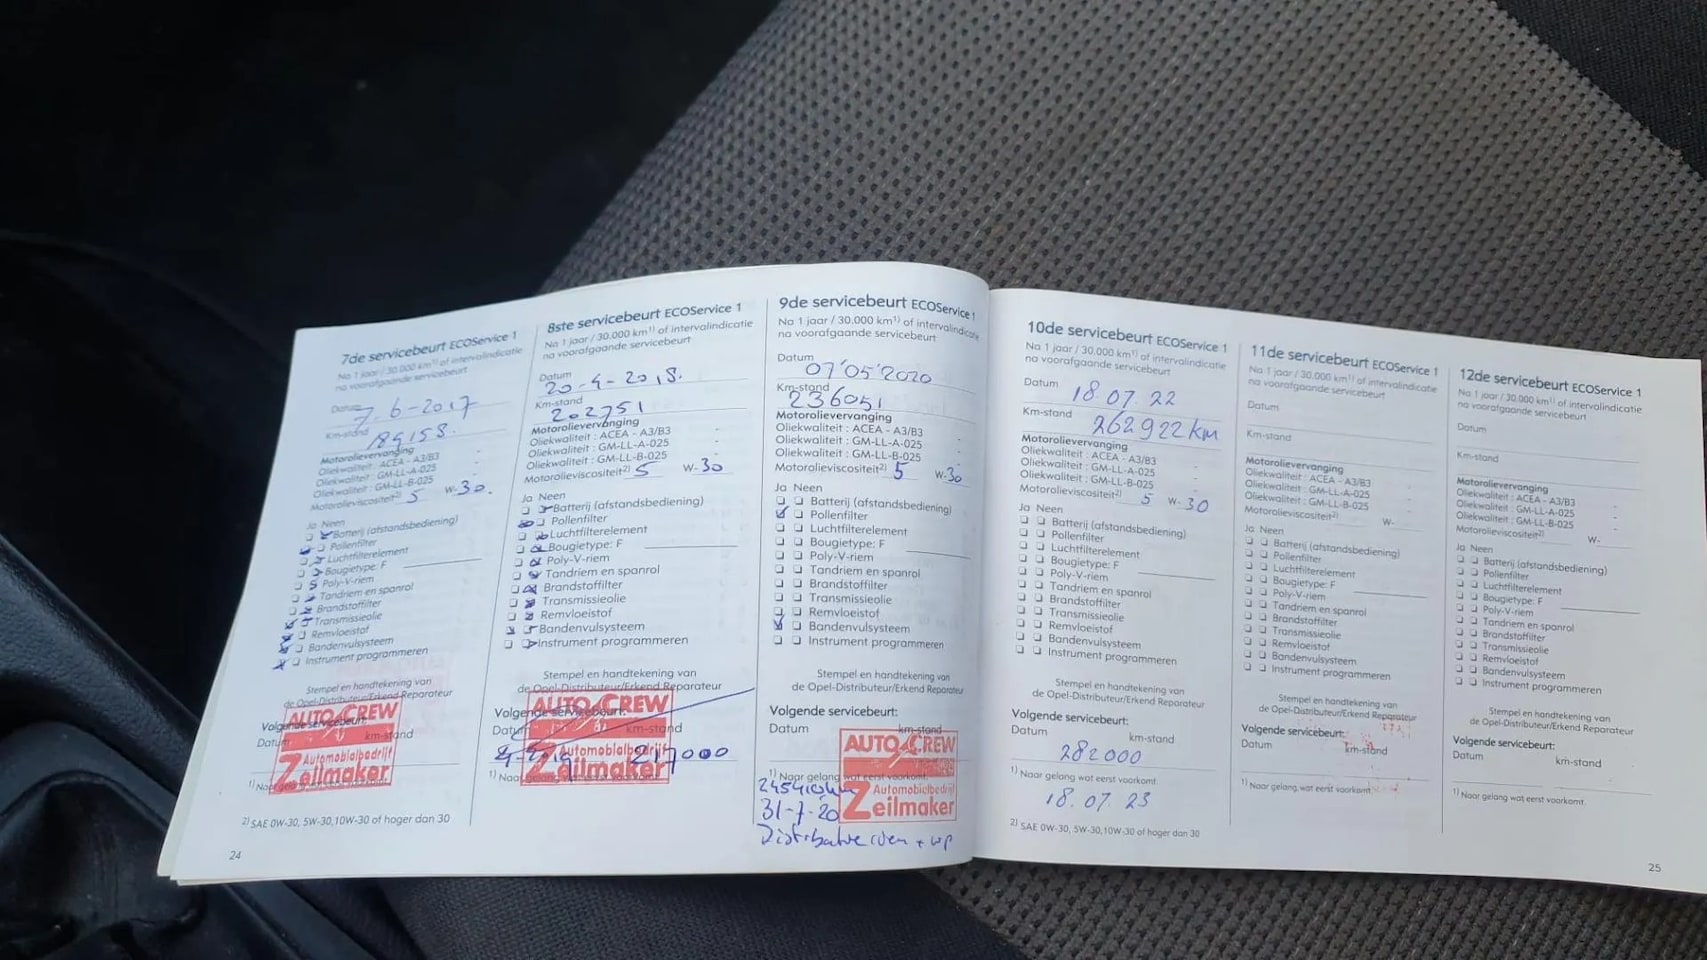 7de servicebeurt ECOService 1
Na 1 jaar / 30.000 km¹⁾ of intervalindicatie
na voorafgaande servicebeurt
Datum
7-6-2017
Km-stand
Motorolievervanging
Oliekwaliteit : ACEA - A3/B3 -
Oliekwaliteit : GM-LL-A-025 -
Oliekwaliteit : GM-LL-B-025 -
Motorolieviscositeit²⁾ 5 W-30.
Ja Neen
Batterij (afstandsbediening)
Pollenfilter
Luchtfilterelement
Bougietype: F
Poly-V-riem
Tandriem en spanrol
Brandstoffilter
Transmissieolie
Remvloeistof
Bandenvulsysteem
Instrument programmeren
Stempel en handtekening van
de Opel-Distributeur/Erkend Reparateur
AUTO CREW
Volgende servicebeurt:
Datum km-stand
Automobielbedrijf
Zeilmaker
¹⁾ Naar gelang wat eerst voorkomt.
²⁾ SAE 0W-30, 5W-30,10W-30 of hoger dan 30
24
8ste servicebeurt ECOService 1
Na 1 jaar / 30.000 km¹⁾ of intervalindicatie
na voorafgaande servicebeurt
Datum
20-4-2018.
Km-stand
202751
Motorolievervanging
Oliekwaliteit : ACEA - A3/B3 -
Oliekwaliteit : GM-LL-A-025 -
Oliekwaliteit : GM-LL-B-025 -
Motorolieviscositeit²⁾ 5 W-30
Ja Neen
Batterij (afstandsbediening)
Pollenfilter
Luchtfilterelement
Bougietype: F
Poly-V-riem
Tandriem en spanrol
Brandstoffilter
Transmissieolie
Remvloeistof
Bandenvulsysteem
Instrument programmeren
Stempel en handtekening van
de Opel-Distributeur/Erkend Reparateur
AUTO CREW
Volgende servicebeurt:
Datum km-stand
217000
Automobielbedrijf
Zeilmaker
¹⁾ Naar gelang wat eerst voorkomt.
9de servicebeurt ECOService 1
Na 1 jaar / 30.000 km¹⁾ of intervalindicatie
na voorafgaande servicebeurt
Datum
07'05'2020
Km-stand
236051
Motorolievervanging
Oliekwaliteit : ACEA - A3/B3 -
Oliekwaliteit : GM-LL-A-025 -
Oliekwaliteit : GM-LL-B-025 -
Motorolieviscositeit²⁾ 5 W-30
Ja Neen
Batterij (afstandsbediening)
Pollenfilter
Luchtfilterelement
Bougietype: F
Poly-V-riem
Tandriem en spanrol
Brandstoffilter
Transmissieolie
Remvloeistof
Bandenvulsysteem
Instrument programmeren
Stempel en handtekening van
de Opel-Distributeur/Erkend Reparateur
Volgende servicebeurt:
Datum km-stand
AUTO CREW
¹⁾ Naar gelang wat eerst voorkomt.
Automobielbedrijf
Zeilmaker
31-7-'20
+ wp
10de servicebeurt ECOService 1
Na 1 jaar / 30.000 km¹⁾ of intervalindicatie
na voorafgaande servicebeurt
Datum 18.07.22
Km-stand 262922 km
Motorolievervanging
Oliekwaliteit : ACEA - A3/B3 -
Oliekwaliteit : GM-LL-A-025 -
Oliekwaliteit : GM-LL-B-025 -
Motorolieviscositeit²⁾ 5 W-30
Ja Neen
Batterij (afstandsbediening)
Pollenfilter
Luchtfilterelement
Bougietype: F
Poly-V-riem
Tandriem en spanrol
Brandstoffilter
Transmissieolie
Remvloeistof
Bandenvulsysteem
Instrument programmeren
Stempel en handtekening van
de Opel-Distributeur/Erkend Reparateur
Volgende servicebeurt:
Datum km-stand
282000
¹⁾ Naar gelang wat eerst voorkomt.
18.07.23
²⁾ SAE 0W-30, 5W-30,10W-30 of hoger dan 30
11de servicebeurt ECOService 1
Na 1 jaar / 30.000 km¹⁾ of intervalindicatie
na voorafgaande servicebeurt
Datum
Km-stand
Motorolievervanging
Oliekwaliteit : ACEA - A3/B3 -
Oliekwaliteit : GM-LL-A-025 -
Oliekwaliteit : GM-LL-B-025 -
Motorolieviscositeit²⁾ W-
Ja Neen
Batterij (afstandsbediening)
Pollenfilter
Luchtfilterelement
Bougietype: F
Poly-V-riem
Tandriem en spanrol
Brandstoffilter
Transmissieolie
Remvloeistof
Bandenvulsysteem
Instrument programmeren
Stempel en handtekening van
de Opel-Distributeur/Erkend Reparateur
Volgende servicebeurt:
Datum km-stand
¹⁾ Naar gelang wat eerst voorkomt.
12de servicebeurt ECOService 1
Na 1 jaar / 30.000 km¹⁾ of intervalindicatie
na voorafgaande servicebeurt
Datum
Km-stand
Motorolievervanging
Oliekwaliteit : ACEA - A3/B3 -
Oliekwaliteit : GM-LL-A-025 -
Oliekwaliteit : GM-LL-B-025 -
Motorolieviscositeit²⁾ W-
Ja Neen
Batterij (afstandsbediening)
Pollenfilter
Luchtfilterelement
Bougietype: F
Poly-V-riem
Tandriem en spanrol
Brandstoffilter
Transmissieolie
Remvloeistof
Bandenvulsysteem
Instrument programmeren
Stempel en handtekening van
de Opel-Distributeur/Erkend Reparateur
Volgende servicebeurt:
Datum km-stand
¹⁾ Naar gelang wat eerst voorkomt.
25